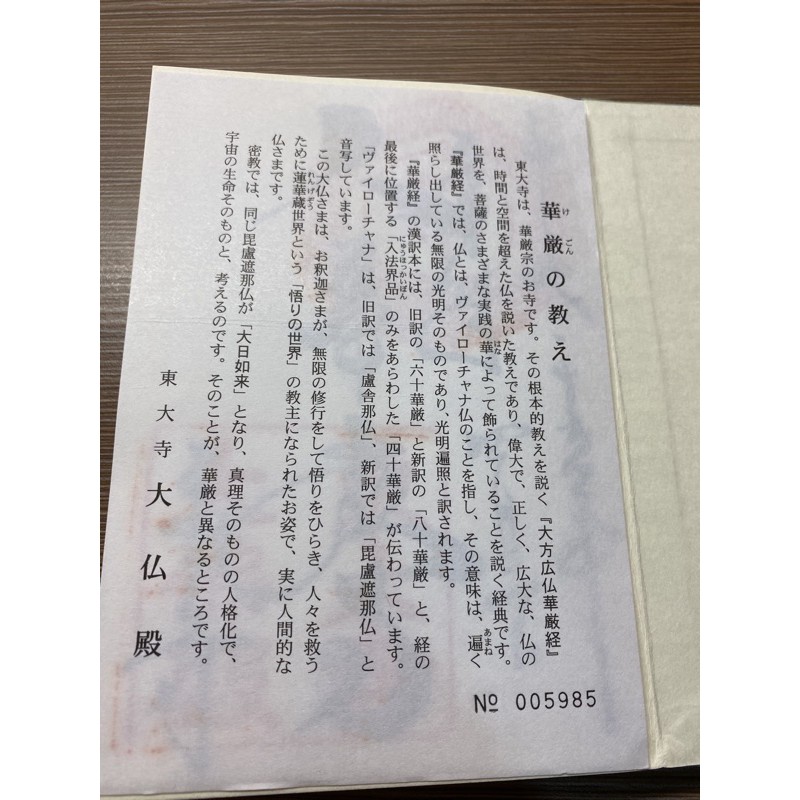 華厳の教え
けごん
東大寺は、華厳宗のお寺です。その根本的教えを説く『大方広仏華厳経』
は、時間と空間を超えた仏を説いた教えであり、偉大で、正しく、広大な、仏の
世界を、菩薩のさまざまな実践の華によって飾られていることを説く経典です。
はな
『華厳経』では、仏とは、ヴァイローチャナ仏のことを指し、その意味は、遍く
あまね
照らし出している無限の光明そのものであり、光明遍照と訳されます。
『華厳経』の漢訳本には、旧訳の「六十華厳」と新訳の「八十華厳」と、経の
最後に位置する「入法界品」のみをあらわした「四十華厳」が伝わっています。
にゅうほっかいぼん
「ヴァイローチャナ」は、旧訳では「盧舎那仏」、新訳では「毘盧遮那仏」と
音写しています。
この大仏さまは、お釈迦さまが、無限の修行をして悟りをひらき、人々を救う
ために蓮華蔵世界という「悟りの世界」の教主になられたお姿で、実に人間的な
れんげぞう
仏さまです。
密教では、同じ毘盧遮那仏が「大日如来」となり、真理そのものの人格化で、
宇宙の生命そのものと、考えるのです。そのことが、華厳と異なるところです。
東大寺大仏殿
№ 005985